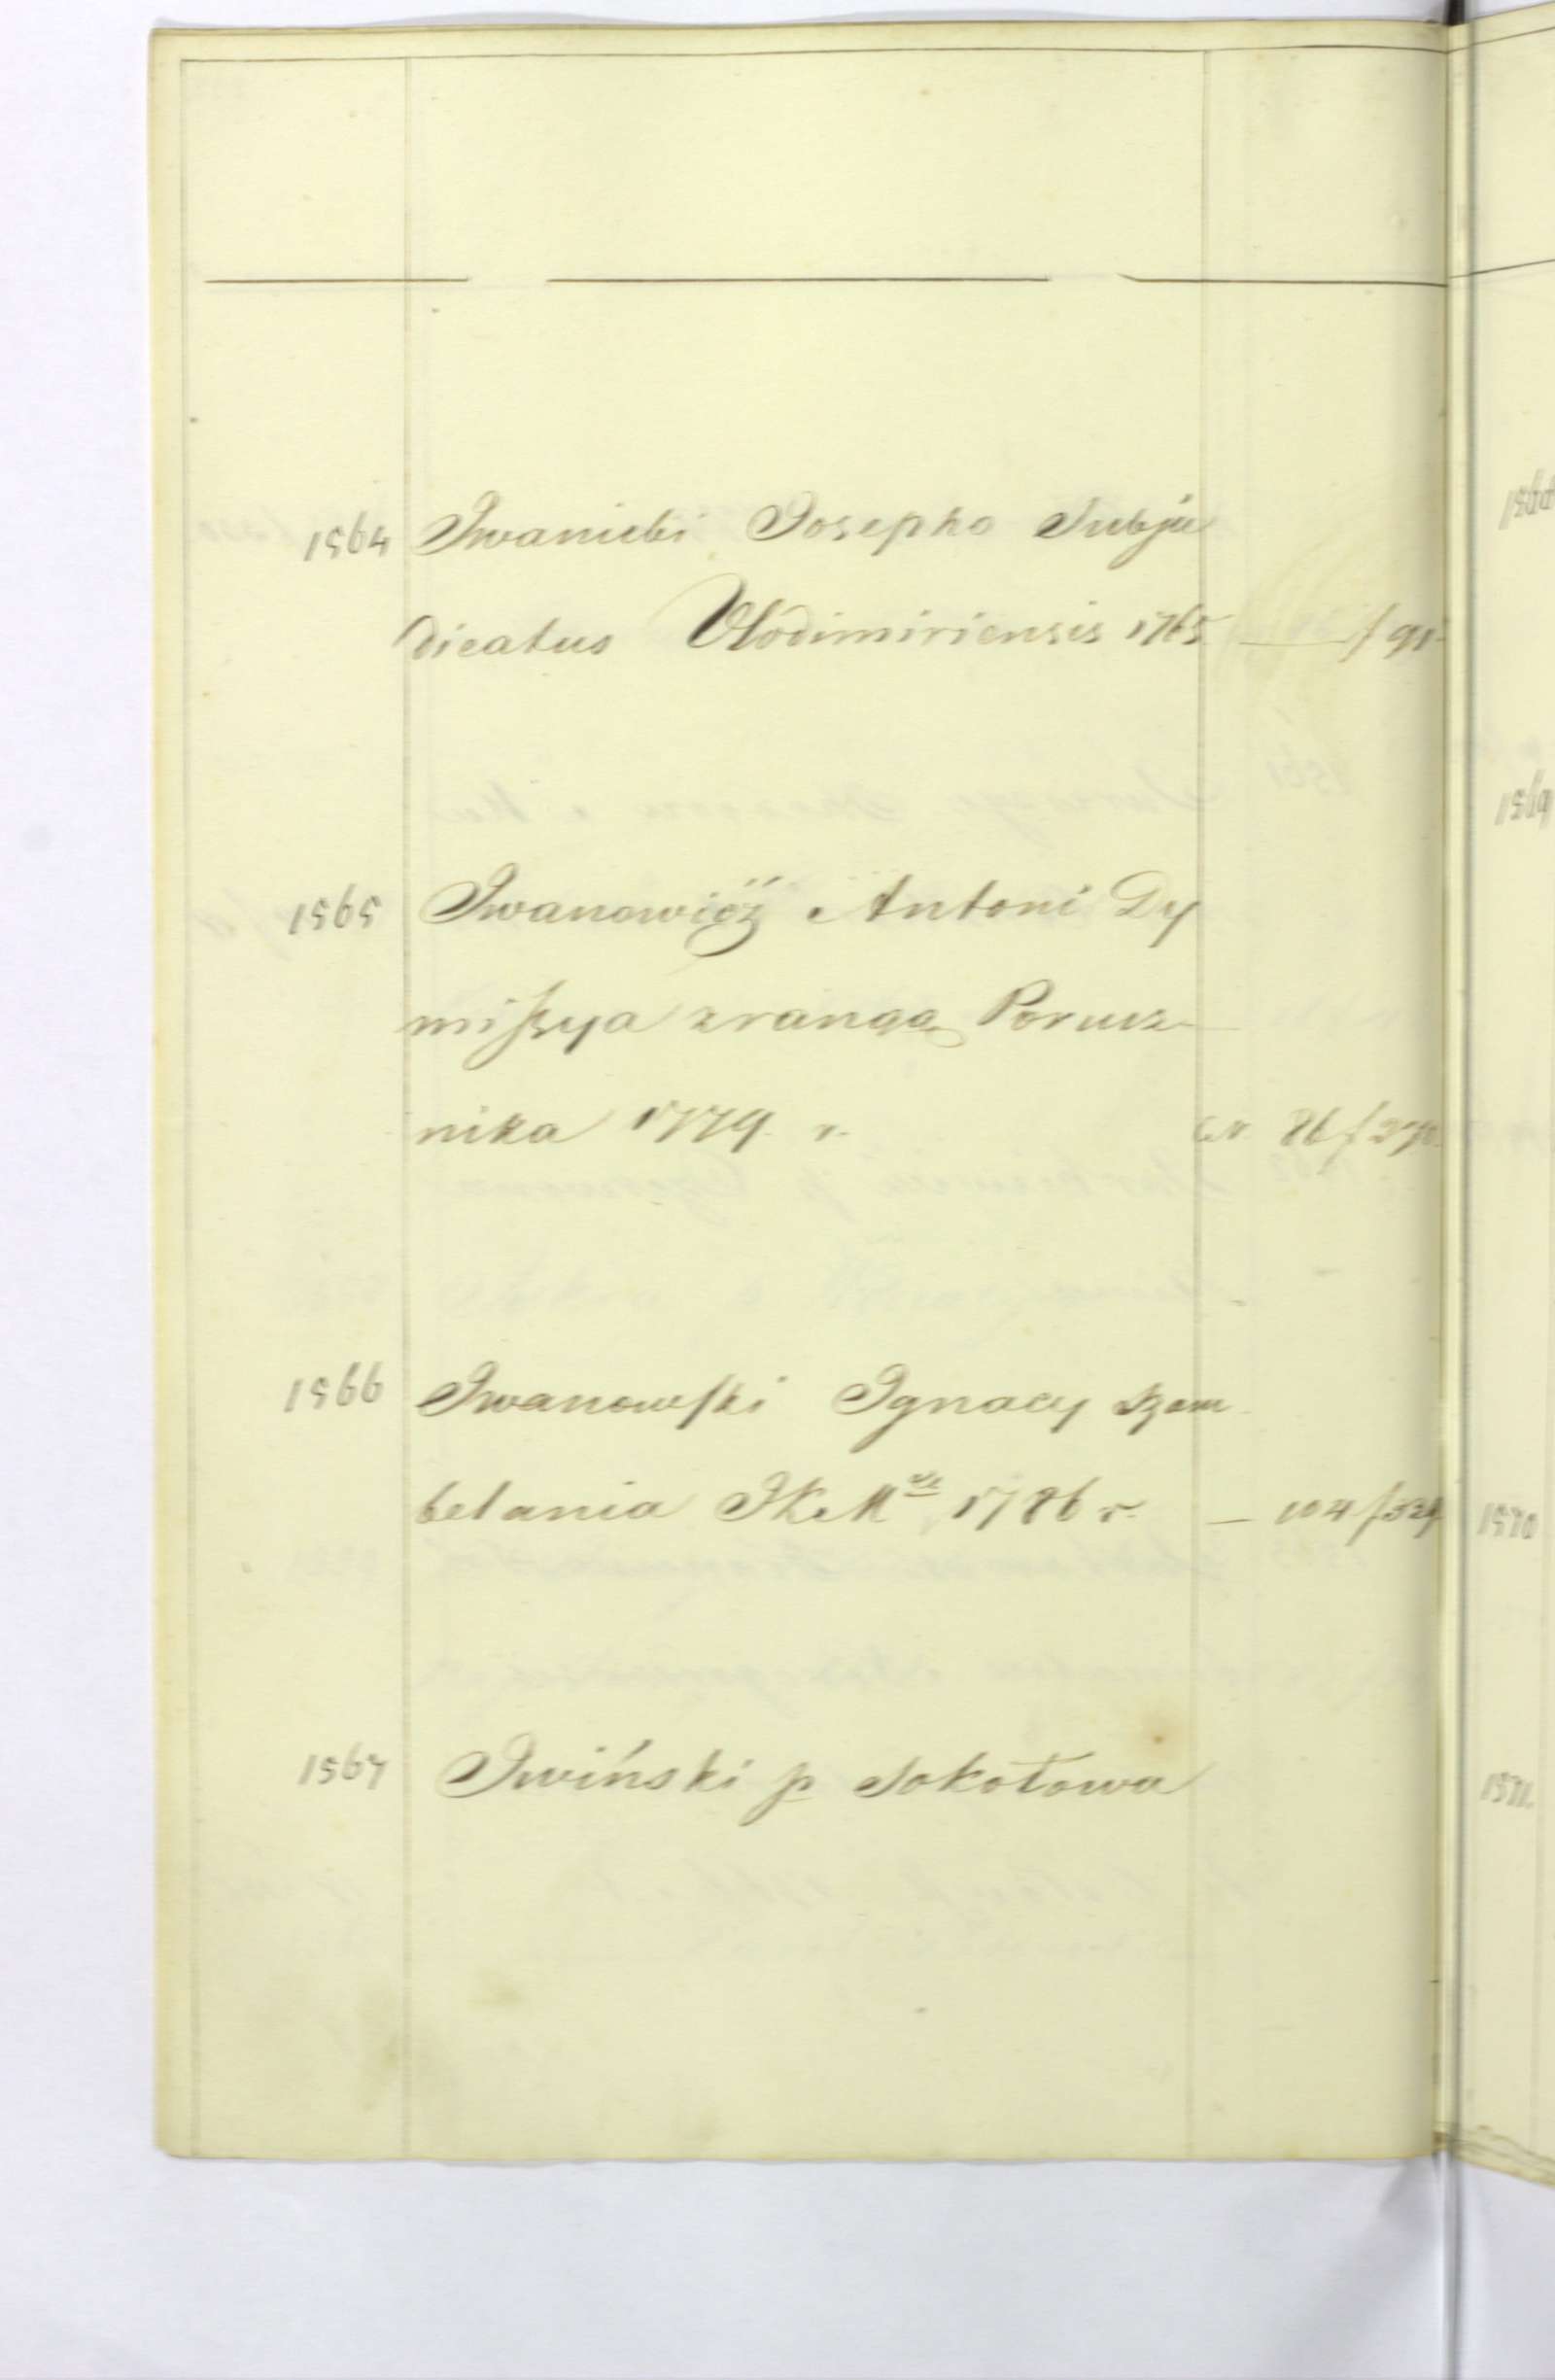 1564 Iwanicki Josepho Subju
dicatus Vlodimiriensis 1765 — f 91
1565 Iwanowicz Antoni Dy
missya z rangą Porucz-
nika 1779. r.
86 f 270.
1566 Iwanowski Ignacy Szam
belania JKMci 1786 r. — 104 f 324
1567 Iwiński p Sokołowa
1569
1570
1571.